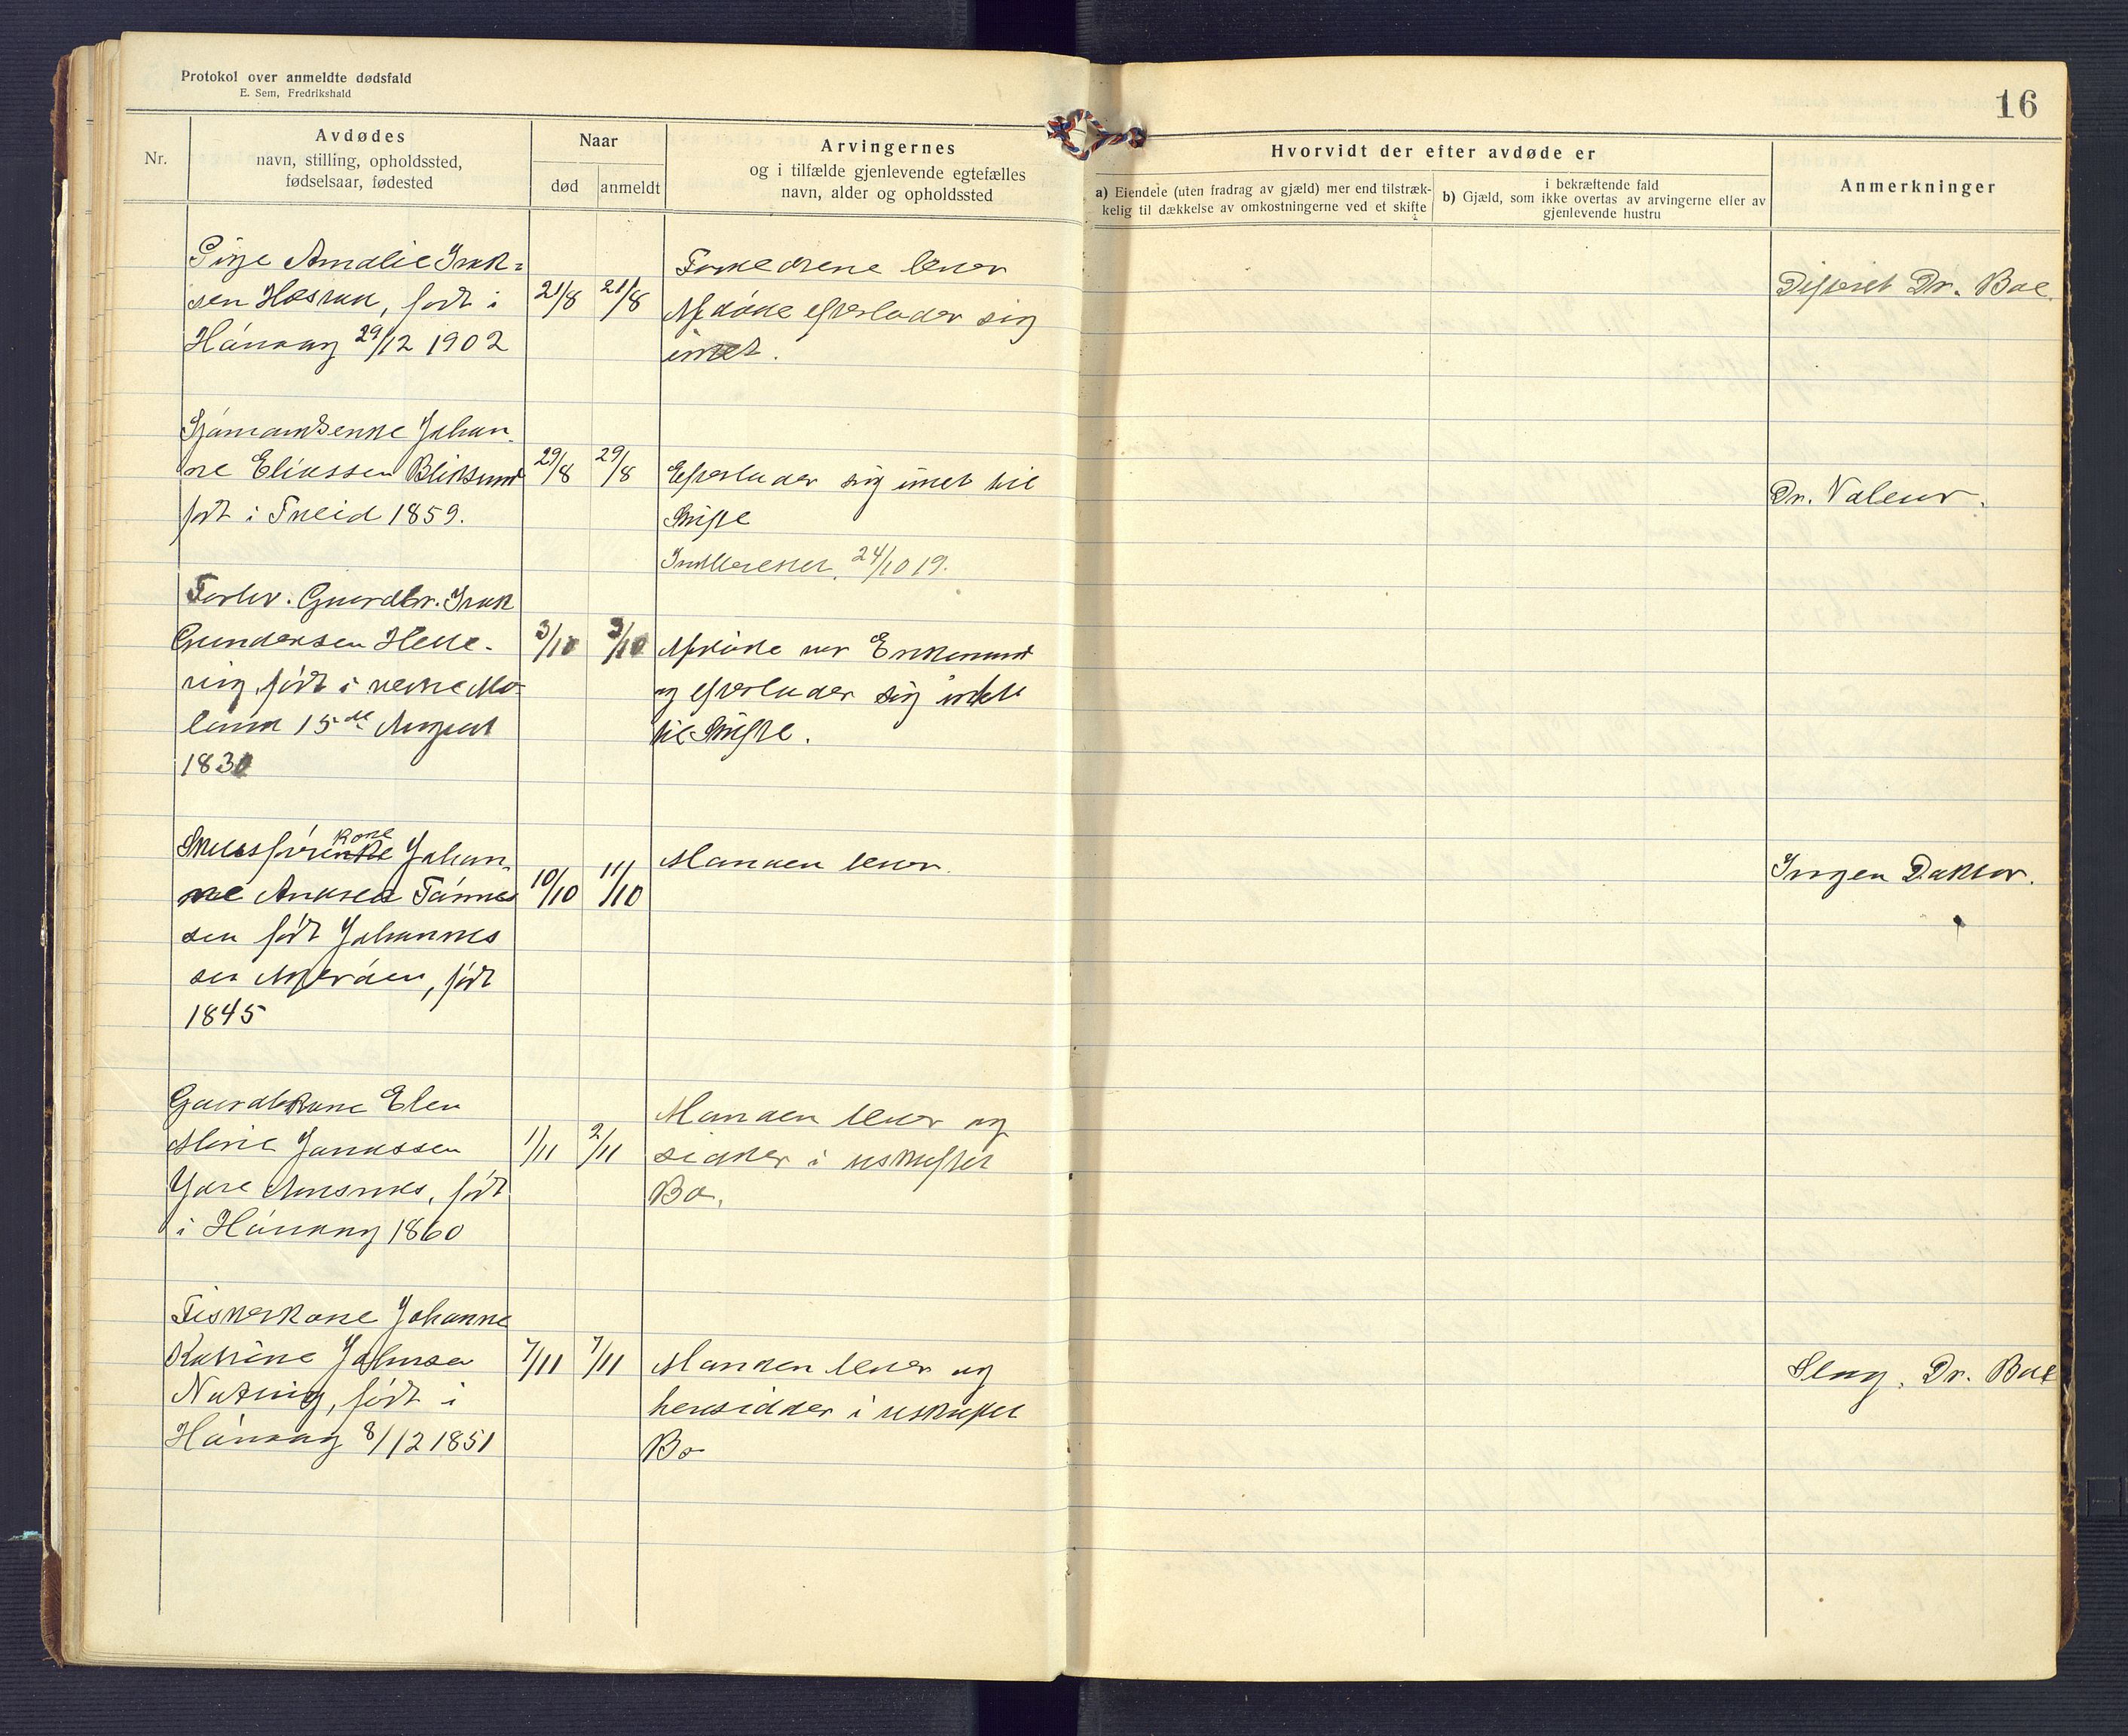 Protokol over anmeldte dødsfald
E. Sem, Fredrikshald
16
Nr.
Avdødes
navn, stilling, opholdssted,
fødselsaar, fødested
Naar
død
anmeldt
Arvingernes
og i tilfælde gjenlevende egtefælles
navn, alder og opholdssted
Hvorvidt der efter avdøde er
a) Eiendele (uten fradrag av gjæld) mer end tilstræk-
kelig til dækkelse av omkostningerne ved et skifte
i bekræftende fald
b) Gjæld, som ikke overtas av arvingerne eller av
gjenlevende hustru
Anmerkninger
Pige Amalie Isak-
sen, født i
Høvaag 29/12 1902
21/8
21/8
Forældrene lever
Afdøde efterlader sig
intet.
Dr. Boe
Sjømandsenke Johan-
ne Eliassen Bliksund
født i Tveid 1859.
29/8
29/8
Efterlader sig intet til
Skifte
Indberettet 24/10 19.
Dr. Valeur.
Forhv. Gaardbr. Isak
Gundersen Helle-
vig, født i vestre Mo-
land 15de August
183
3/10
3/10
Afdøde var Enkemand
og efterlader sig intet
til Skifte.
kone
Johan-
ne Andrea Tønnes
sen født Johannes
sen Agerøen, født
1845
10/10
11/10
Manden lever.
Ingen Doktor.
Gaardbrkone Elen
Marie
født
i Høvaag 1860
1/11
2/11
Manden lever og
sidder i uskiftet
Bo.
Fiskerkone Johanne
Katrine Johnsen
født i
Høvaag 8/12 1851
7/11
7/11
Manden lever og
hensidder i uskiftet
Bo
Slag. Dr. Boe